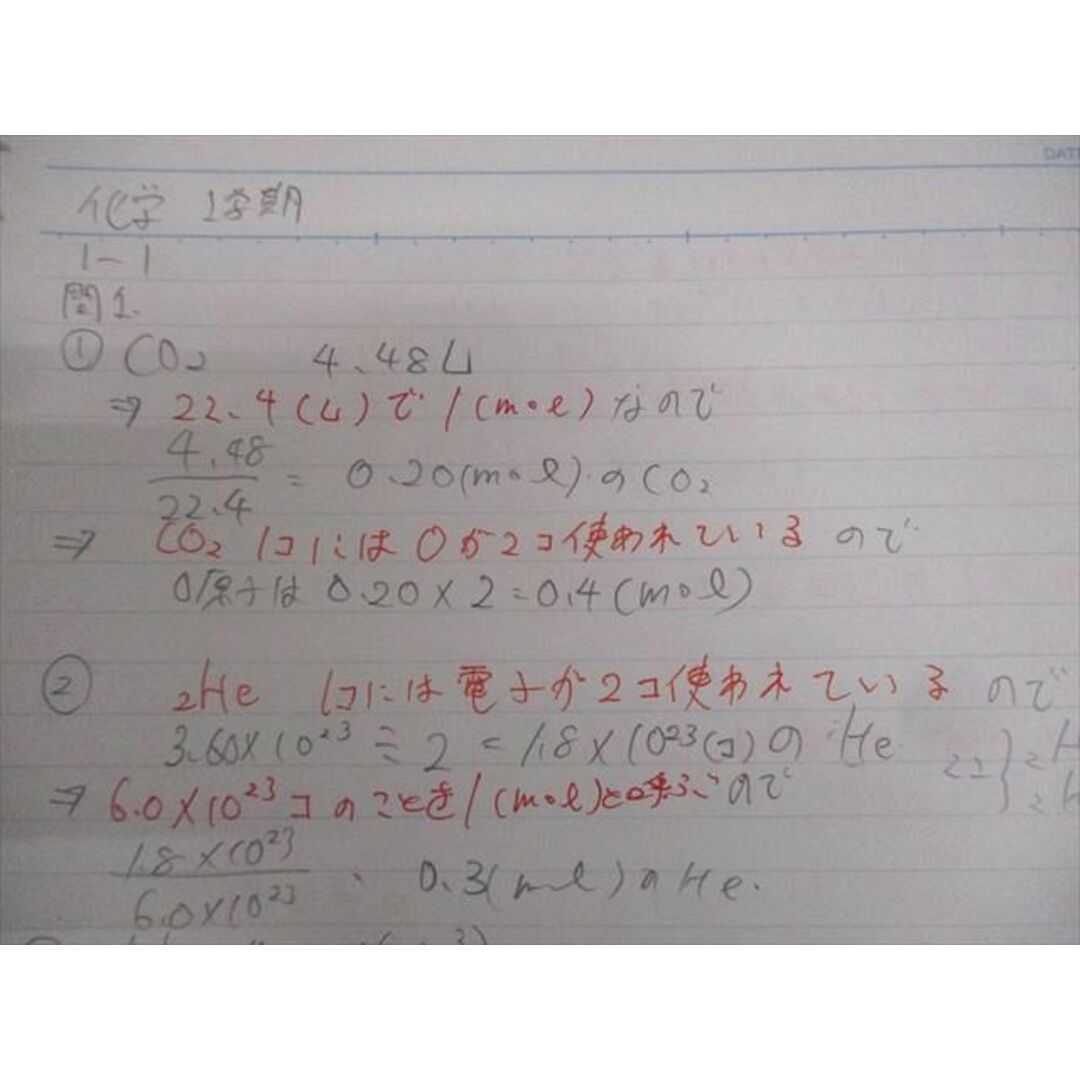 DATE
化学 1学期
1-1
問1.
① CO₂ 4.48L
⇒ 22.4(L)で1(mol)なので
4.48
22.4
= 0.20(mol)のCO₂
⇒ CO₂ 1コにはOが2コ使われているので
O原子は 0.20×2=0.4(mol)
② ₂He 1コには電子が2コ使われているので
3.60×10²³÷2=1.8×10²³(コ)のHe
⇒ 6.0×10²³コのことを1(mol)と呼ぶので
1.8×10²³
6.0×10²³
0.3(mol)のHe.